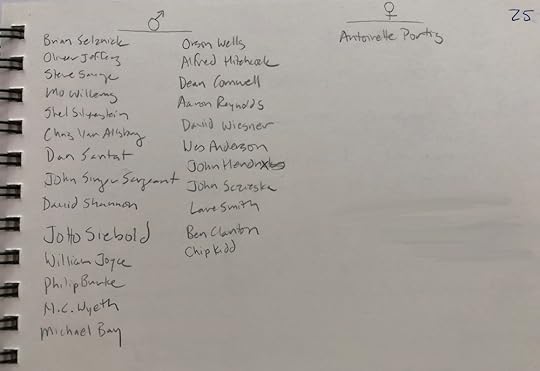 ♂
Brian Selznick
Oliver Jeffers
Steve Savage
Mo Willems
Shel Silverstein
Chris Van Allsburg
Dan Santat
John Singer Sargeant
David Shannon
JoTTo Siebold
William Joyce
Philip Burke
N.C. Wyeth
Michael Bay
Orson Wells
Alfred Hitchcock
Dean Cornwell
Aaron Reynolds
David Wiesner
Wes Anderson
John Hendrix
John Sczieska
Lane Smith
Ben Clanton
Chip Kidd
♀
Antoinette Portis
25